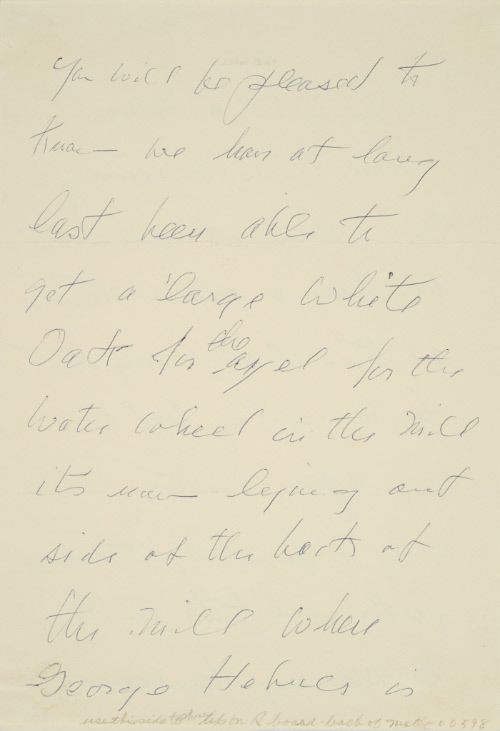 You will be pleased to
know we have at long
last been able to
get a large white
Oak for the axel for the
water wheel in the mill
its now leying out
side at the back of
the mill where
George Helmes is
use this side to on R board back of 00598